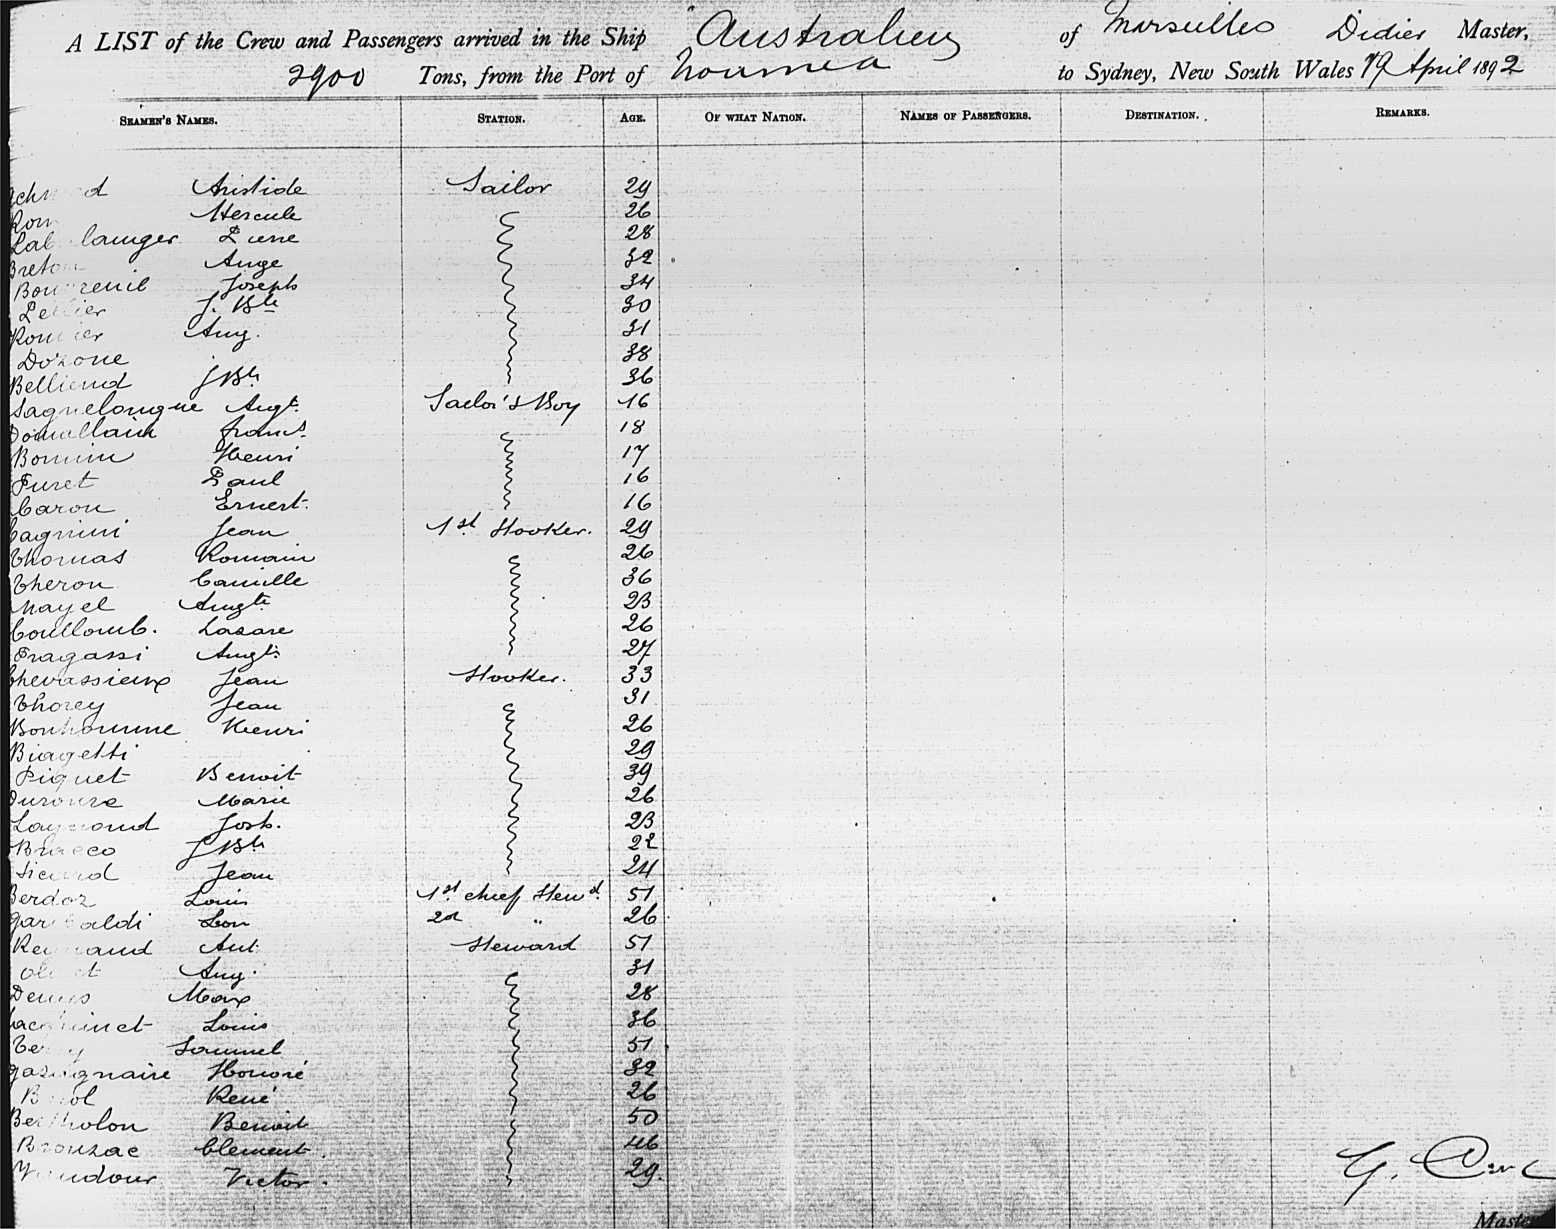 A LIST of the Crew and Passengers arrived in the Ship Australien of Marseilles Didier Master,
2900 Tons, from the Port of Noumea to Sydney, New South Wales 19 April 1892
SEAMEN'S NAMES. STATION. AGE. OF WHAT NATION. NAMES OF PASSENGERS. DESTINATION. REMARKS.
Aristide Sailor 29
Hercule 26
Pierre 28
Breton Ange 32
Joseph 34
J. Bte 30
Aug. 31
Dozone 38
J Bte 36
Saquelongue Augte Sailor's Boy 16
Domallain Francs. 18
Bonnin Henri 17
Furet Paul 16
Caron Ernest. 16
Cagnini Jean 1st Stooker. 29
Thomas Romain 26
Theron Camille 36
Mayel Augte 23
Coullomb. Lazare 26
Fragassi Augte 27
Chevassieux Jean Stooker. 33
Thorey Jean 31
Bonhomme Henri 26
Biagetti 29
Piquet Benoit 39
Marie 26
Josh. 23
Bracco J Bte 22
Jean 24
Berdoz Louis 1st chief Stewd. 51
Garibaldi Leon 2d " 26
Ant. Steward 51
Aug. 31
Denis Max 28
Jacquinet Louis 36
Sammel 51
Gazagnaire Honoré 32
René 26
Bertholon Benoit 50
Bronzac Clement. 46
Victor. 29.
G.
Master